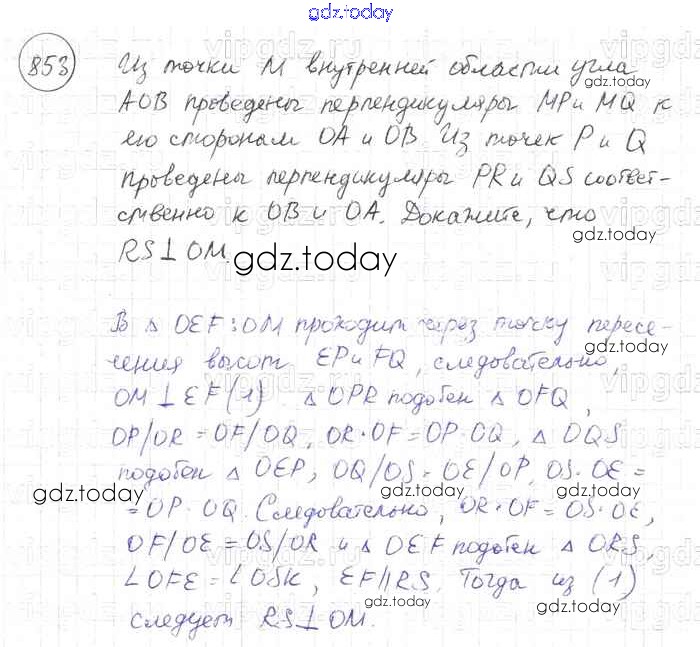 gdz.today
853
Из точки M внутренней области угла
AOB проведены перпендикуляры MP и MQ к
его сторонам OA и OB. Из точек P и Q
проведены перпендикуляры PR и QS соответ-
ственно к OB и OA. Докажите, что
RS⊥OM.
gdz.today
В △ OEF: OM проходит через точку пересе-
чения высот EP и FQ, следовательно,
OM⊥EF (1). △ OPR подобен △ OFQ,
OP/OR = OF/OQ, OR·OF = OP·OQ, △ OQS
подобен △ OEP, OQ/OS = OE/OP, OS·OE =
= OP·OQ. Следовательно, OR·OF = OS·OE,
OF/OE = OS/OR и △ OEF подобен △ ORS,
∠OFE = ∠OSK, EF∥RS. Тогда из (1)
следует RS⊥OM.